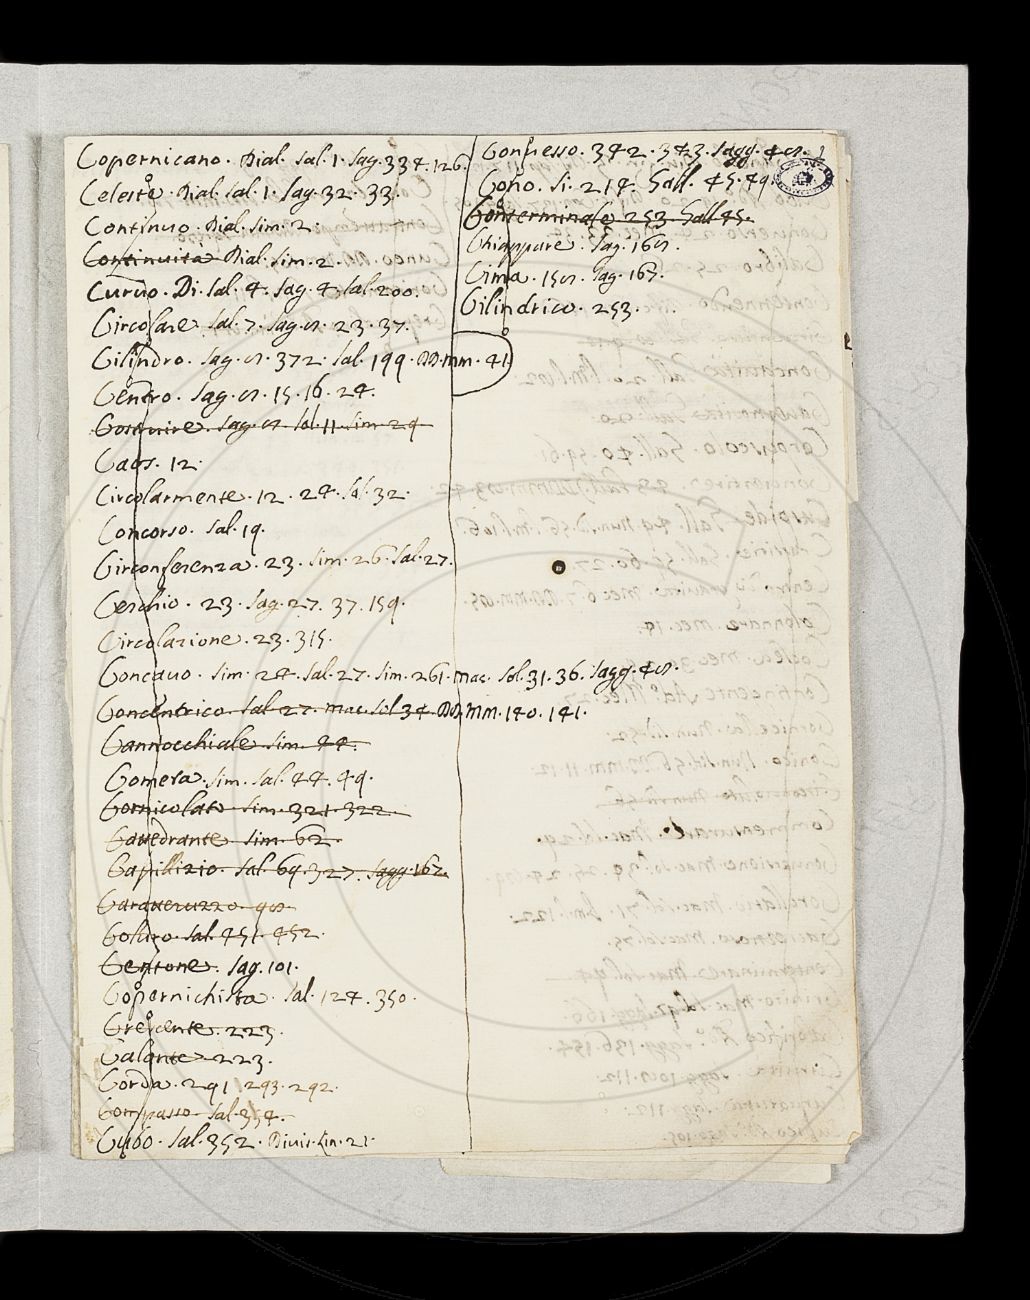 Copernicano. Dial. Sal. 1. Sag. 334. 126.
Celeste Dial. Sal. 1. Sag. 32. 33.
Continuo. Dial. Sim. 2
Continuità Dial. Sim. 2.
Curuo. Di. Sal. 4. Sag. 4. Sal. 200.
Circolare Sal. 7. Sag. 23. 37.
Cilindro. Sag. 372. Sal. 199. DD. mm. 41
Centro. Sag. 15. 16. 24.
Sag. Sal. 11. Sim. 29
Caos. 12.
Circolarmente. 12. 24. Sal. 32.
Concorso. Sal. 19.
Circonferenza. 23. Sim. 26. Sal. 27.
Cerchio. 23. Sag. 27. 37. 159.
Circolazione. 23. 315.
Concauo. Sim. 24. Sal. 27. Sim. 261. Mac. Sol. 31. 36. Sagg.
Concentrico. Sal. 27. Mac. Sol 34. DD. MM. 140. 141.
Cannocchiale Sim. 44.
Cometa. Sim. Sal. 44. 49.
Cornicolato Sim. 321. 322.
Sim. 62.
Capillizio. Sal. 69. 327. Sagg. 167.
Coluro. Sal. 451. 452.
Centone. Sag. 101.
Copernichista. Sal. 124. 350.
Crescente. 223.
Calante 223.
Corda. 291. 293. 292.
Compasso. Sal. 354.
Cubo. Sal. 352. Diuis. Lin. 21.
Conuesso. 342. 343. Sagg.
Cono. Si. 214. Gall. 45. 49.
Conterminale. 253. Gall 45.
Chiappare. Sag. 165.
Cima. 155. Sag. 167.
Cilindrico. 253.